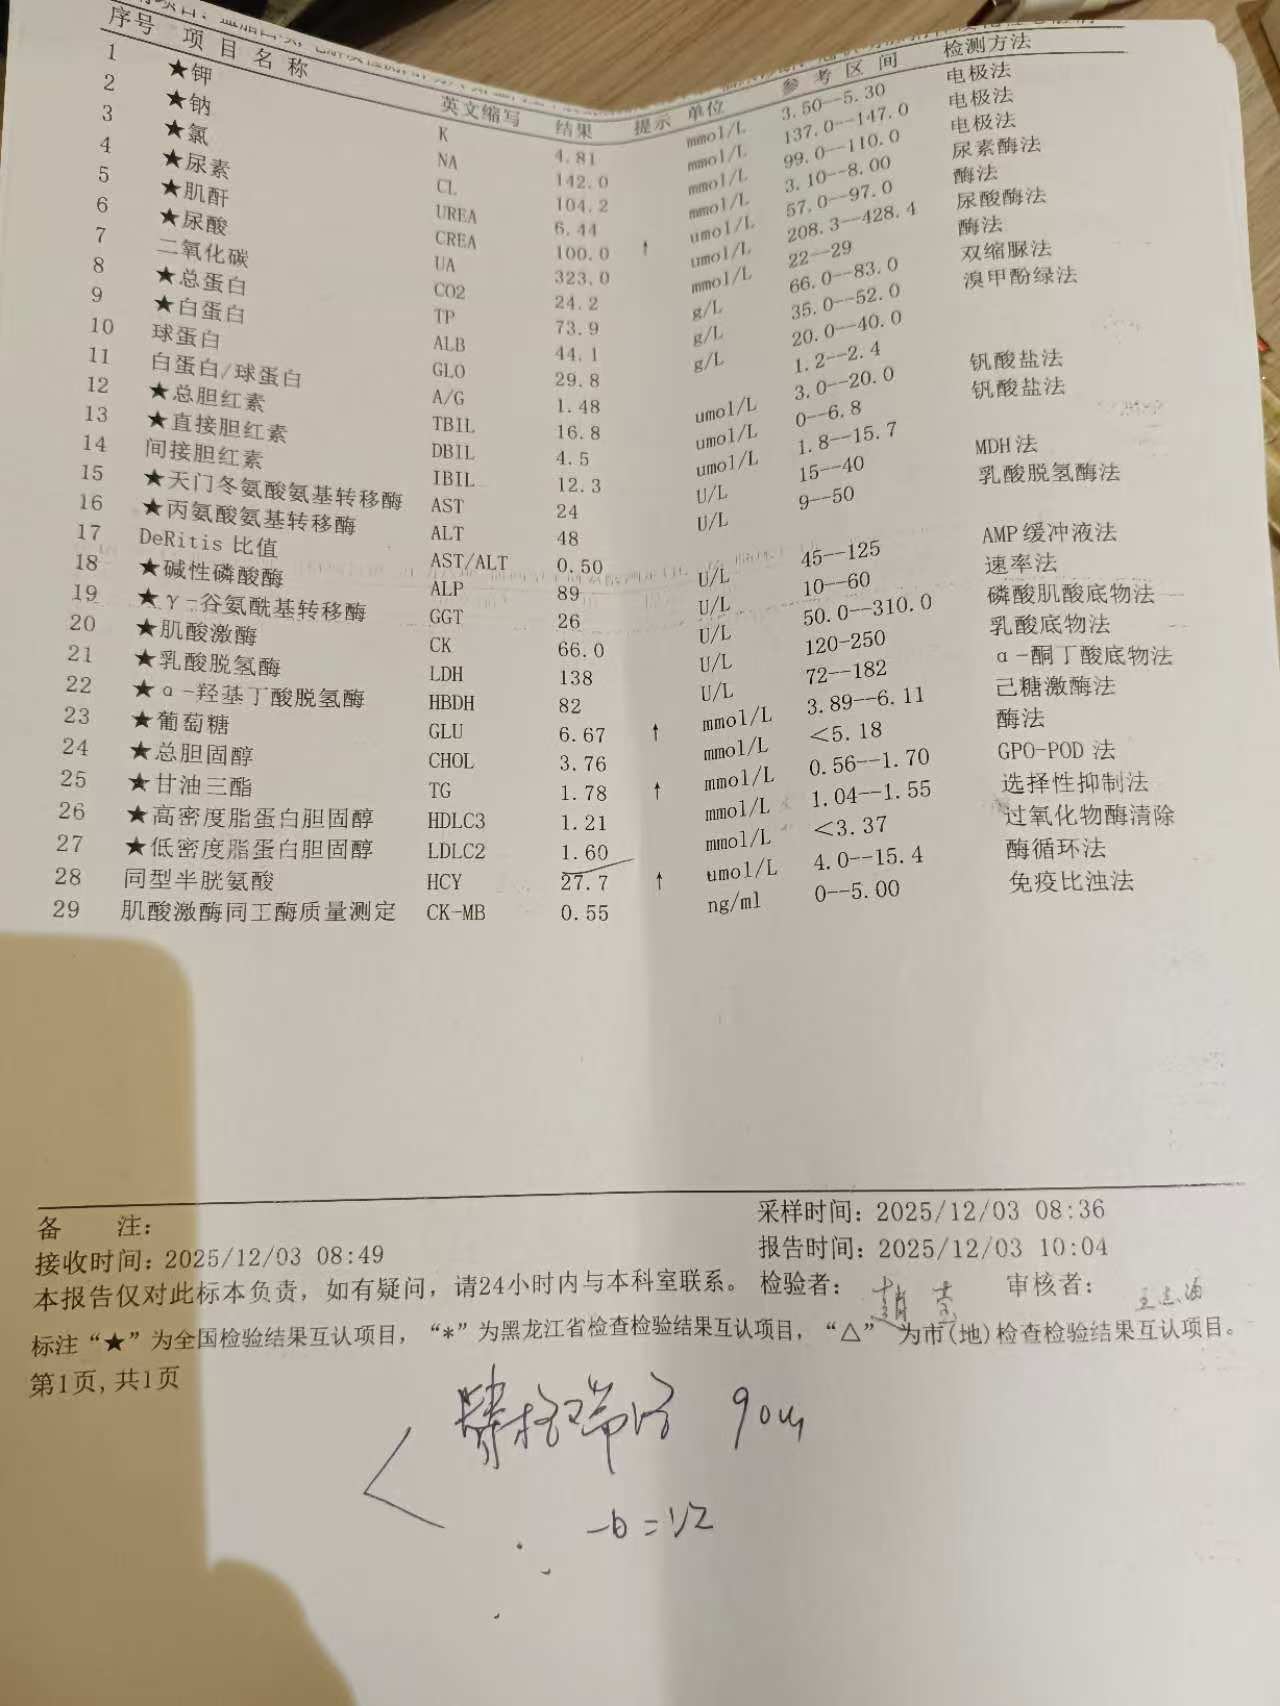 序号 项目名称 英文缩写 结果 提示 单位 参考区间 检测方法
1 ★钾 K 4.81 mmol/L 3.50--5.30 电极法
2 ★钠 NA 142.0 mmol/L 137.0--147.0 电极法
3 ★氯 CL 104.2 mmol/L 99.0--110.0 电极法
4 ★尿素 UREA 6.44 mmol/L 3.10--8.00 尿素酶法
5 ★肌酐 CREA 100.0 ↑ umol/L 57.0--97.0 酶法
6 ★尿酸 UA 323.0 umol/L 208.3--428.4 尿酸酶法
7 二氧化碳 CO2 24.2 mmol/L 22--29 酶法
8 ★总蛋白 TP 73.9 g/L 66.0--83.0 双缩脲法
9 ★白蛋白 ALB 44.1 g/L 35.0--52.0 溴甲酚绿法
10 球蛋白 GLO 29.8 g/L 20.0--40.0
11 白蛋白/球蛋白 A/G 1.48 1.2--2.4
12 ★总胆红素 TBIL 16.8 umol/L 3.0--20.0 钒酸盐法
13 ★直接胆红素 DBIL 4.5 umol/L 0--6.8 钒酸盐法
14 间接胆红素 IBIL 12.3 umol/L 1.8--15.7
15 ★天门冬氨酸氨基转移酶 AST 24 U/L 15--40 MDH法
16 ★丙氨酸氨基转移酶 ALT 48 U/L 9--50 乳酸脱氢酶法
17 DeRitis比值 AST/ALT 0.50
18 ★碱性磷酸酶 ALP 89 U/L 45--125 AMP缓冲液法
19 ★γ-谷氨酰基转移酶 GGT 26 U/L 10--60 速率法
20 ★肌酸激酶 CK 66.0 U/L 50.0--310.0 磷酸肌酸底物法
21 ★乳酸脱氢酶 LDH 138 U/L 120-250 乳酸底物法
22 ★α-羟基丁酸脱氢酶 HBDH 82 U/L 72--182 α-酮丁酸底物法
23 ★葡萄糖 GLU 6.67 ↑ mmol/L 3.89--6.11 己糖激酶法
24 ★总胆固醇 CHOL 3.76 mmol/L <5.18 酶法
25 ★甘油三酯 TG 1.78 ↑ mmol/L 0.56--1.70 GPO-POD法
26 ★高密度脂蛋白胆固醇 HDLC3 1.21 mmol/L 1.04--1.55 选择性抑制法
27 ★低密度脂蛋白胆固醇 LDLC2 1.60 mmol/L <3.37 过氧化物酶清除
28 同型半胱氨酸 HCY 27.7 ↑ umol/L 4.0--15.4 酶循环法
29 肌酸激酶同工酶质量测定 CK-MB 0.55 ng/ml 0--5.00 免疫比浊法
备 注: 采样时间: 2025/12/03 08:36
接收时间: 2025/12/03 08:49 报告时间: 2025/12/03 10:04
本报告仅对此标本负责，如有疑问，请24小时内与本科室联系。 检验者: 审核者:
标注“★”为全国检验结果互认项目，“*”为黑龙江省检查检验结果互认项目，“△”为市(地)检查检验结果互认项目。
第1页,共1页